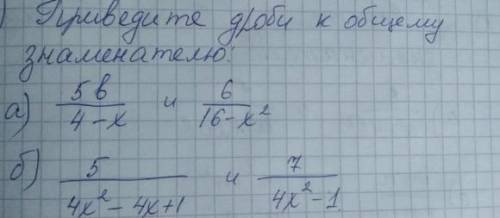 ) Приведите дроби к общему
знаменателю:
а) 5в/(4-x) и 6/(16-x²)
б) 5/(4x²-4x+1) и 7/(4x²-1)